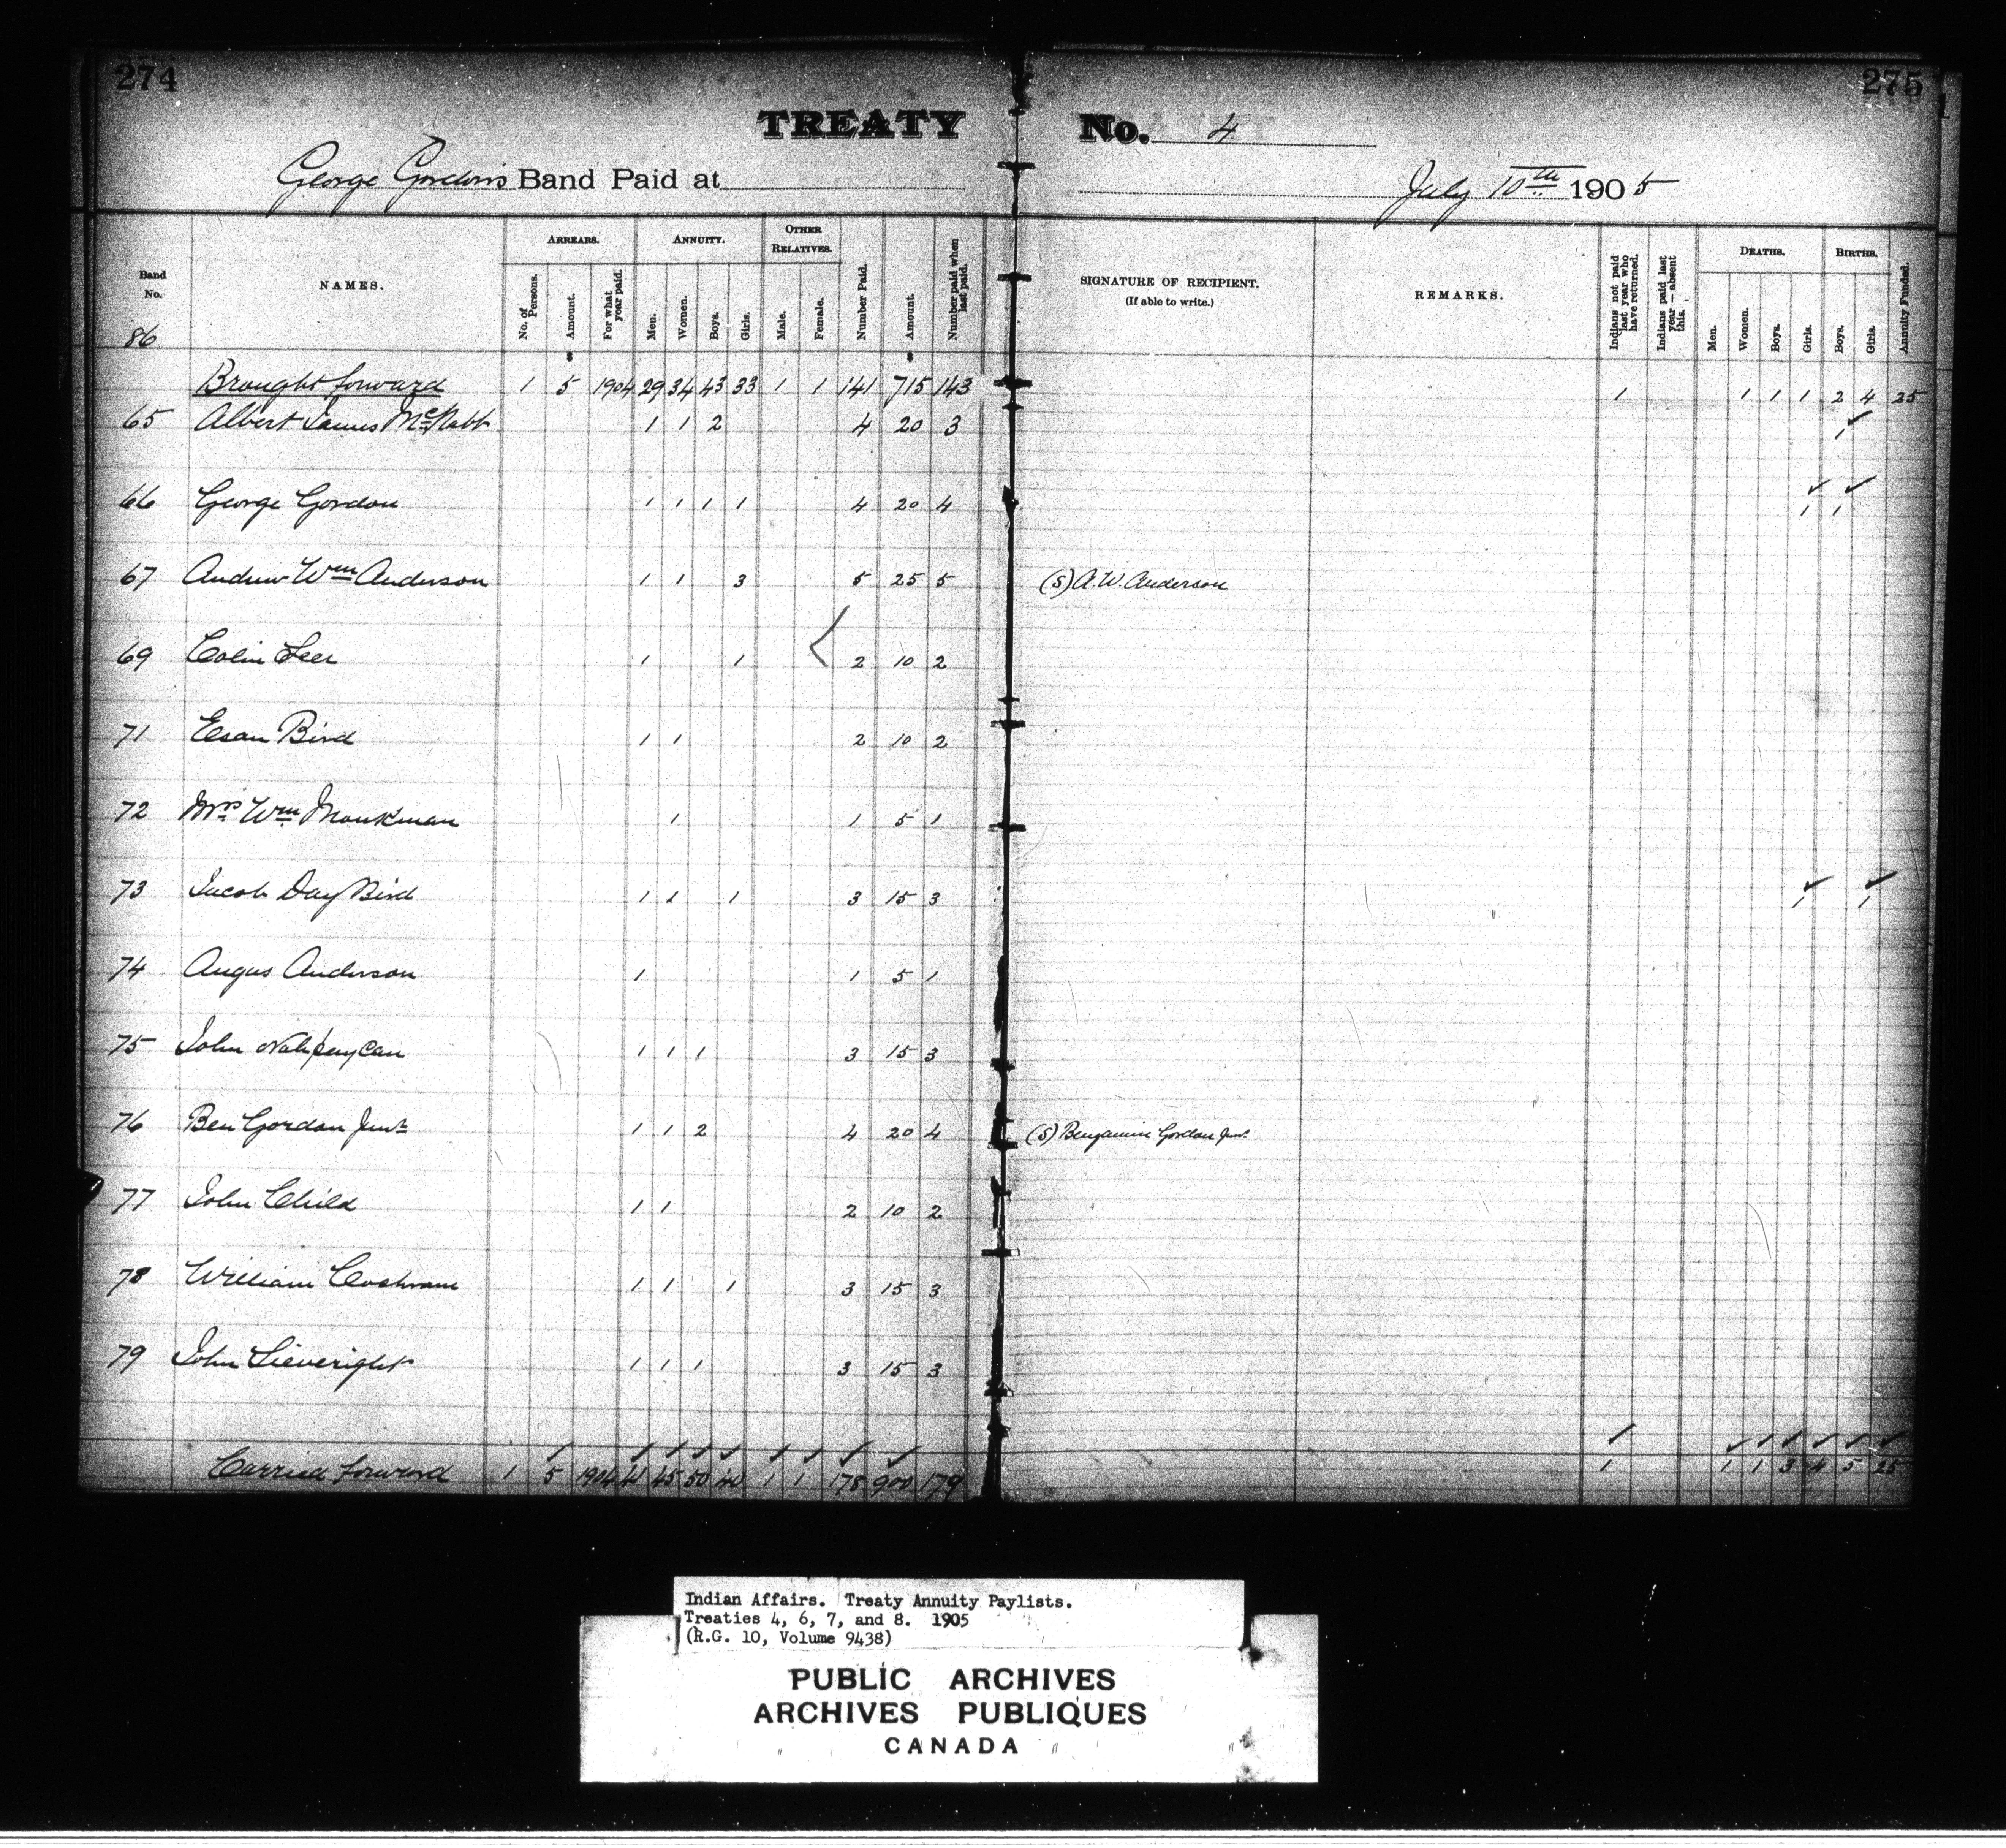 274
275
TREATY No. 4
George Gordon's Band Paid at July 10th 1905
Band No.
NAMES.
ARREARS.
No. of Persons.
Amount.
For what year paid.
ANNUITY.
Men.
Women.
Boys.
Girls.
OTHER RELATIVES.
Male.
Female.
Number Paid.
Amount.
Number paid when last paid.
SIGNATURE OF RECIPIENT.
(If able to write.)
REMARKS.
Indians not paid last year who have returned.
Indians paid last year — absent this.
DEATHS.
Men.
Women.
Boys.
Girls.
BIRTHS.
Boys.
Girls.
Annuity Funded.
86
Brought forward 1 5 1904 29 34 43 33 1 1 141 715 143 1 1 1 1 2 4 25
65 Albert James McNabb 1 1 2 4 20 3 1
66 George Gordon 1 1 1 1 4 20 4 1 1
67 Andrew Wm Anderson 1 1 3 5 25 5 (S) A. W. Anderson
69 Colin Seer 1 1 2 10 2
71 Esau Bird 1 1 2 10 2
72 Mrs. Wm. Monkman 1 1 5 1
73 Jacob Day Bird 1 1 1 3 15 3 1 1
74 Angus Anderson 1 1 5 1
75 John Nahpaycan 1 1 1 3 15 3
76 Ben Gordon Junr 1 1 2 4 20 4 (S) Benjamin Gordon Junr
77 John Child 1 1 2 10 2
78 William Cochrane 1 1 1 3 15 3
79 John Sieveright 1 1 1 3 15 3
Carried forward 1 5 1904 41 45 50 40 1 1 178 900 179 1 1 1 3 4 5 25
Indian Affairs. Treaty Annuity Paylists.
Treaties 4, 6, 7, and 8. 1905
(R.G. 10, Volume 9438)
PUBLIC ARCHIVES
ARCHIVES PUBLIQUES
CANADA